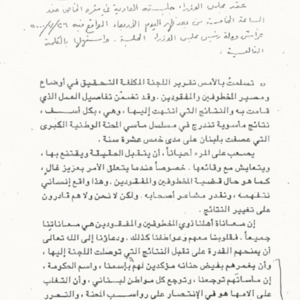 عقد مجلس الوزراء جلسته العادية في مقره الخاص عند
الساعة الخامسة من بعد ظهر اليوم الأربعاء الواقع فيه
برئاسة دولة رئيس مجلس الوزراء الجلسة. واستهلها بالكلمة
التالية:
" تسلمت بالأمس تقرير اللجنة المكلفة التحقيق في أوضاع
ومصير المخطوفين والمفقودين. وقد تضمّن تفاصيل العمل الذي
قامت به والنتائج التي انتهت إليها، وهي، بكل أسف،
نتائج مأسوية تندرج في مسلسل مآسي المحنة الوطنية الكبرى
التي عصفت بلبنان على مدى خمس عشرة سنة.
يصعب على المرء أحياناً، أن يتقبل الحقيقة ويقتنع بها،
ويتعايش مع وقائعها. خصوصاً عندما يتعلق الأمر بعزيز غالٍ،
كما هو حال قضية المخطوفين والمفقودين. وهذا واقع إنساني
نتفهمه، ونقدر مشاعر أصحابه. ولكن لا نحن ولا هم قادرون
على تغيير النتائج.
إن معاناة أهلنا ذوي المخطوفين والمفقودين هي معاناتنا
جميعاً. فقلوبنا معهم وعواطفنا كذلك. ودعاؤنا إلى الله تعالى
أن يمنحهم القدرة على تقبل النتائج التي توصلت اللجنة إليها،
وأن يغمرهم بفيض حنانه مؤكدين لهم بإسمنا، واسم الحكومة،
أن مصابهم مصابنا، ونرجو كل مواطن لبناني، أن التغلب
على آلامها هو في الإنتصار على رواسب المحنة، والتحرر